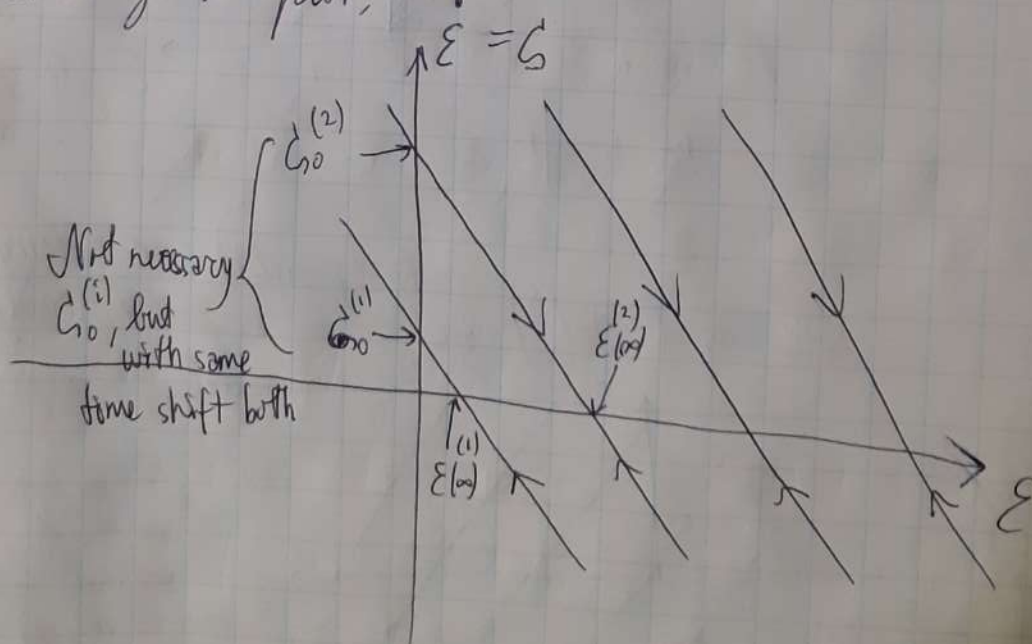 ε = ζ
ζ₀⁽²⁾
Not necessary
ζ₀⁽ⁱ⁾, but
with some
time shift both
ζ₀⁽¹⁾
ε(∞)⁽²⁾
ε(∞)⁽¹⁾
ε